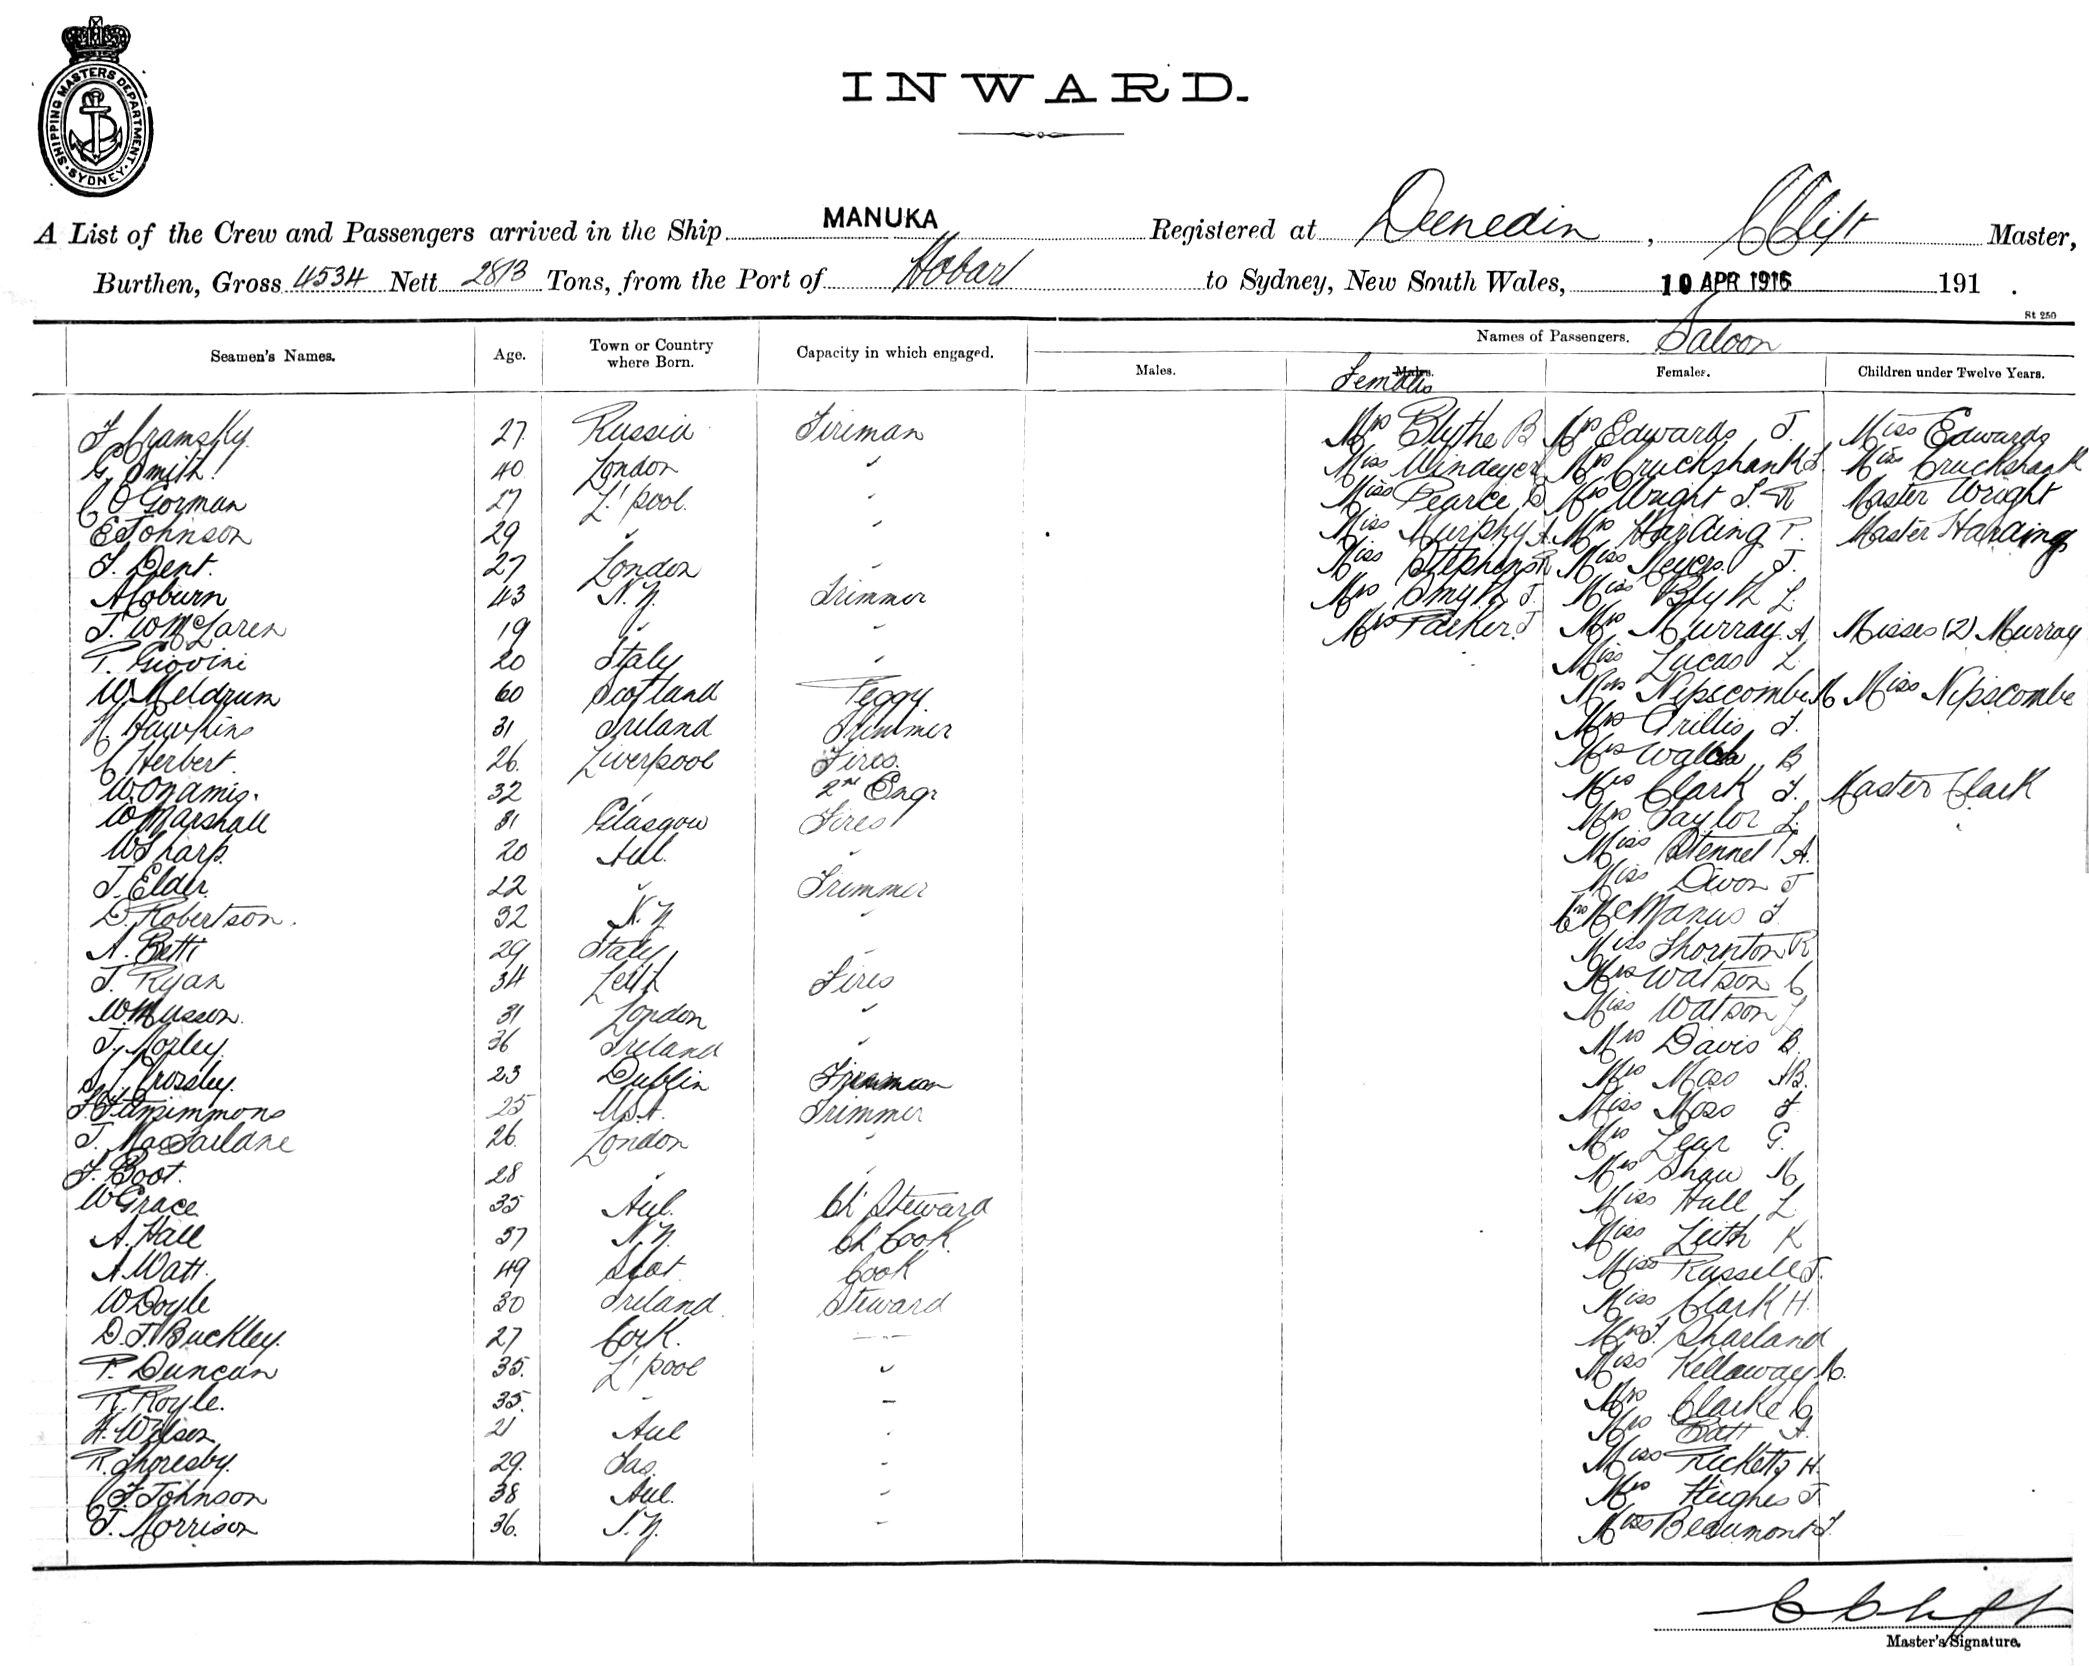 SHIPPING MASTERS DEPARTMENT. SYDNEY
INWARD.
A List of the Crew and Passengers arrived in the Ship MANUKA Registered at Dunedin, C Clift Master,
Burthen, Gross 4534 Nett 2813 Tons, from the Port of Hobart to Sydney, New South Wales, 10 APR 1916 191 .
St 250
Seamen's Names. Age. Town or Country where Born. Capacity in which engaged. Names of Passengers. Saloon
Males. Males. Females Females. Children under Twelve Years.
F Gramsky. 27. Russia Fireman Mrs Blythe B Mrs Edwards J. Miss Edwards
G. Smith. 40 London " Miss Windeyer Mrs Cruckshank J. Miss Cruckshank
C O'Gorman 27 L'pool. " Miss Pearce Mrs Wright J. R Master Wright
E Johnson 29 " " Miss Murphy A Mrs Harding P. Master Harding
F. Dent. 27 London " Miss Stephens R Miss Meyers J.
A Coburn 43 N.Z. Trimmer Mrs Smyth J. Miss Blyth L.
J. W McLaren 19 " " Mrs Parker J Mrs Murray. A Misses (2) Murray
P. Giovini 20 Italy " Miss Lucas L.
W. Meldrum 60 Scotland Peggy. Mrs Nipscombe M Miss Nipscombe
H. Hawkins 31 Ireland Trimmer Mrs Trillis J.
C Herbert. 26. Liverpool Fires. Mrs Walch B
32 " 2nd Engr Mrs Clark J. Master Clark
W Marshall 31 Glasgow Fires Mrs Taylor L.
W Sharp. 20 Aul. " Miss Stennet A.
J. Elder. 22 " Trimmer Miss Dixon J
D. Robertson. 32 N.Z " Mrs McManus J.
A. Betti 29 Italy " Miss Thornton R
J. Ryan 34 Leith Fires Mrs Watson C
W Musson. 31 London " Miss Watson J
J. Morley. 36 Ireland " Mrs Davis B.
Crossley. 23 Dublin Fireman Mrs Moss AB.
F. Fitzsimmons 25 U.S.A. Trimmer Miss Moss J
J. MacFarlane 26. London " Mrs Lear G.
F. Boot. 28 " " Mrs Shaw M
W Grace 35 Aul. Ch Steward Miss Hall L.
A. Hall 37 N.Z. Ch Cook. Miss Leith K
A Watt. 49 Scot Cook Miss Russell J.
W Doyle 30 Ireland Steward Miss Clark H.
D. J. Buckley. 27 Cork. " Mrs J. Sharland
P. Duncan 35. L'pool " Miss Kellaway M.
R. Royle. 35. " " Mrs Clarke C
H. Wilson 21 Aul " Mrs Batt A.
R. Thoresby. 29. Tas. " Miss Ricketts H.
C F Johnson 38 Aul. " Mrs Hughes J
J. Morrison 36. N.Z. " Miss Beaumont J.
C Clift
Master's Signature.